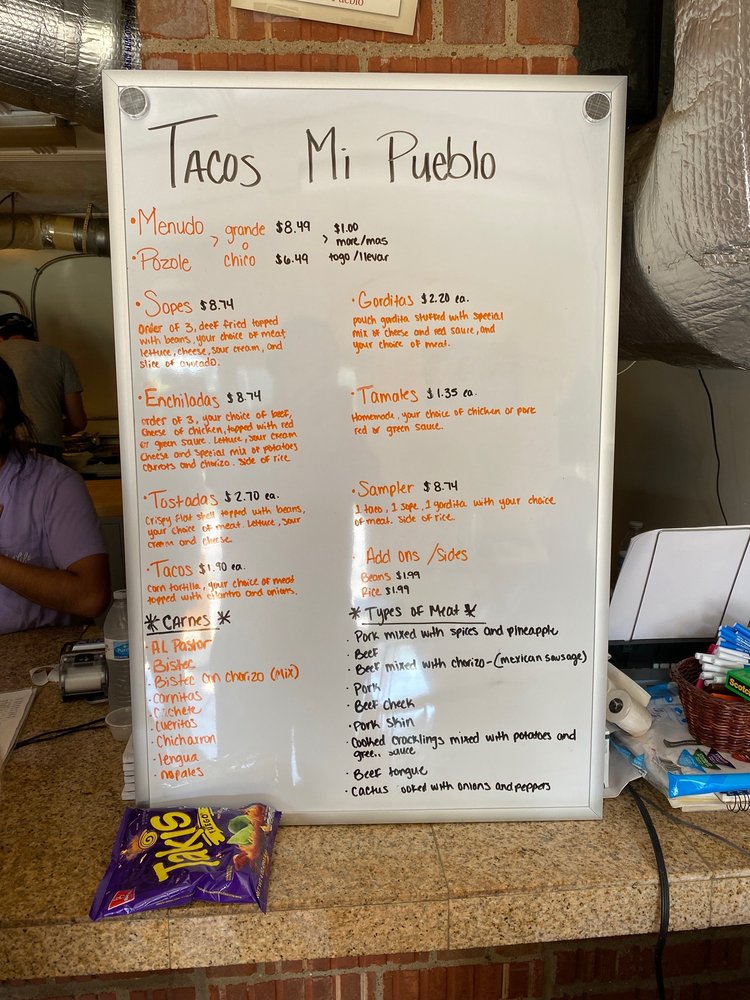 Pueblo
TACOS Mi Pueblo
• Menudo > grande $8.49 > $1.00
o more/mas
• Pozole chico $6.49 togo/llevar
• Sopes $8.74
order of 3, deef fried topped
with beans, your choice of meat
lettuce, cheese, sour cream, and
slice of avocado.
• Gorditas $2.20 ea.
pouch gordita stuffed with special
mix of cheese and red sauce, and
your choice of meat.
• Enchiladas $8.74
order of 3, your choice of beef,
cheese of chicken, topped with red
or green sauce. Lettuce, sour cream
cheese and special mix of potatoes
carrots and chorizo. Side of rice
• Tamales $1.35 ea.
Homemade, your choice of chicken or pork
red or green sauce.
• Tostadas $2.70 ea.
Crispy flat shell topped with beans,
your choice of meat. Lettuce, sour
cream and cheese.
• Sampler $8.74
1 taco, 1 sope, 1 gordita with your choice
of meat. side of rice.
• Tacos $1.90 ea.
corn tortilla, your choice of meat
topped with cilantro and onions.
• Add ons /Sides
Beans $1.99
Rice $1.99
* Carnes *
• AL Pastor
• Bistec
• Bistec con chorizo (Mix)
• Carnitas
• Cachete
• Cueritos
• Chicharron
• lengua
• nopales
* Types of Meat *
• Pork mixed with spices and pineapple
• Beef
• Beef mixed with chorizo-(mexican sausage)
• Pork
• Beef cheek
• Pork skin
• Cooked cracklings mixed with potatoes and
green sauce
• Beef tongue
• Cactus ooked with onions and peppers
TAKIS
FUEGO
Scotch